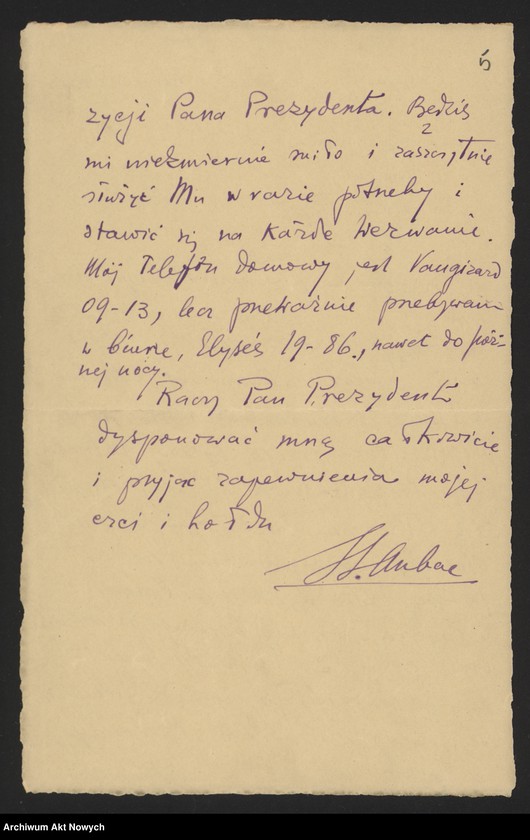 5
zycji Pana Prezydenta. Będzie
2
mi niezmiernie miło i zaszczytnie
służyć Mu w razie potrzeby i
stawić się na każde wezwanie.
Mój telefon domowy jest Vaugirard
09-13, lecz przeważnie przebywam
w biurze, Elysées 19-86., nawet do póź-
nej nocy.
Raczy Pan Prezydent
dysponować mną całkowicie
i przyjąć zapewnienia mojej
czci i hołdu
Archiwum Akt Nowych